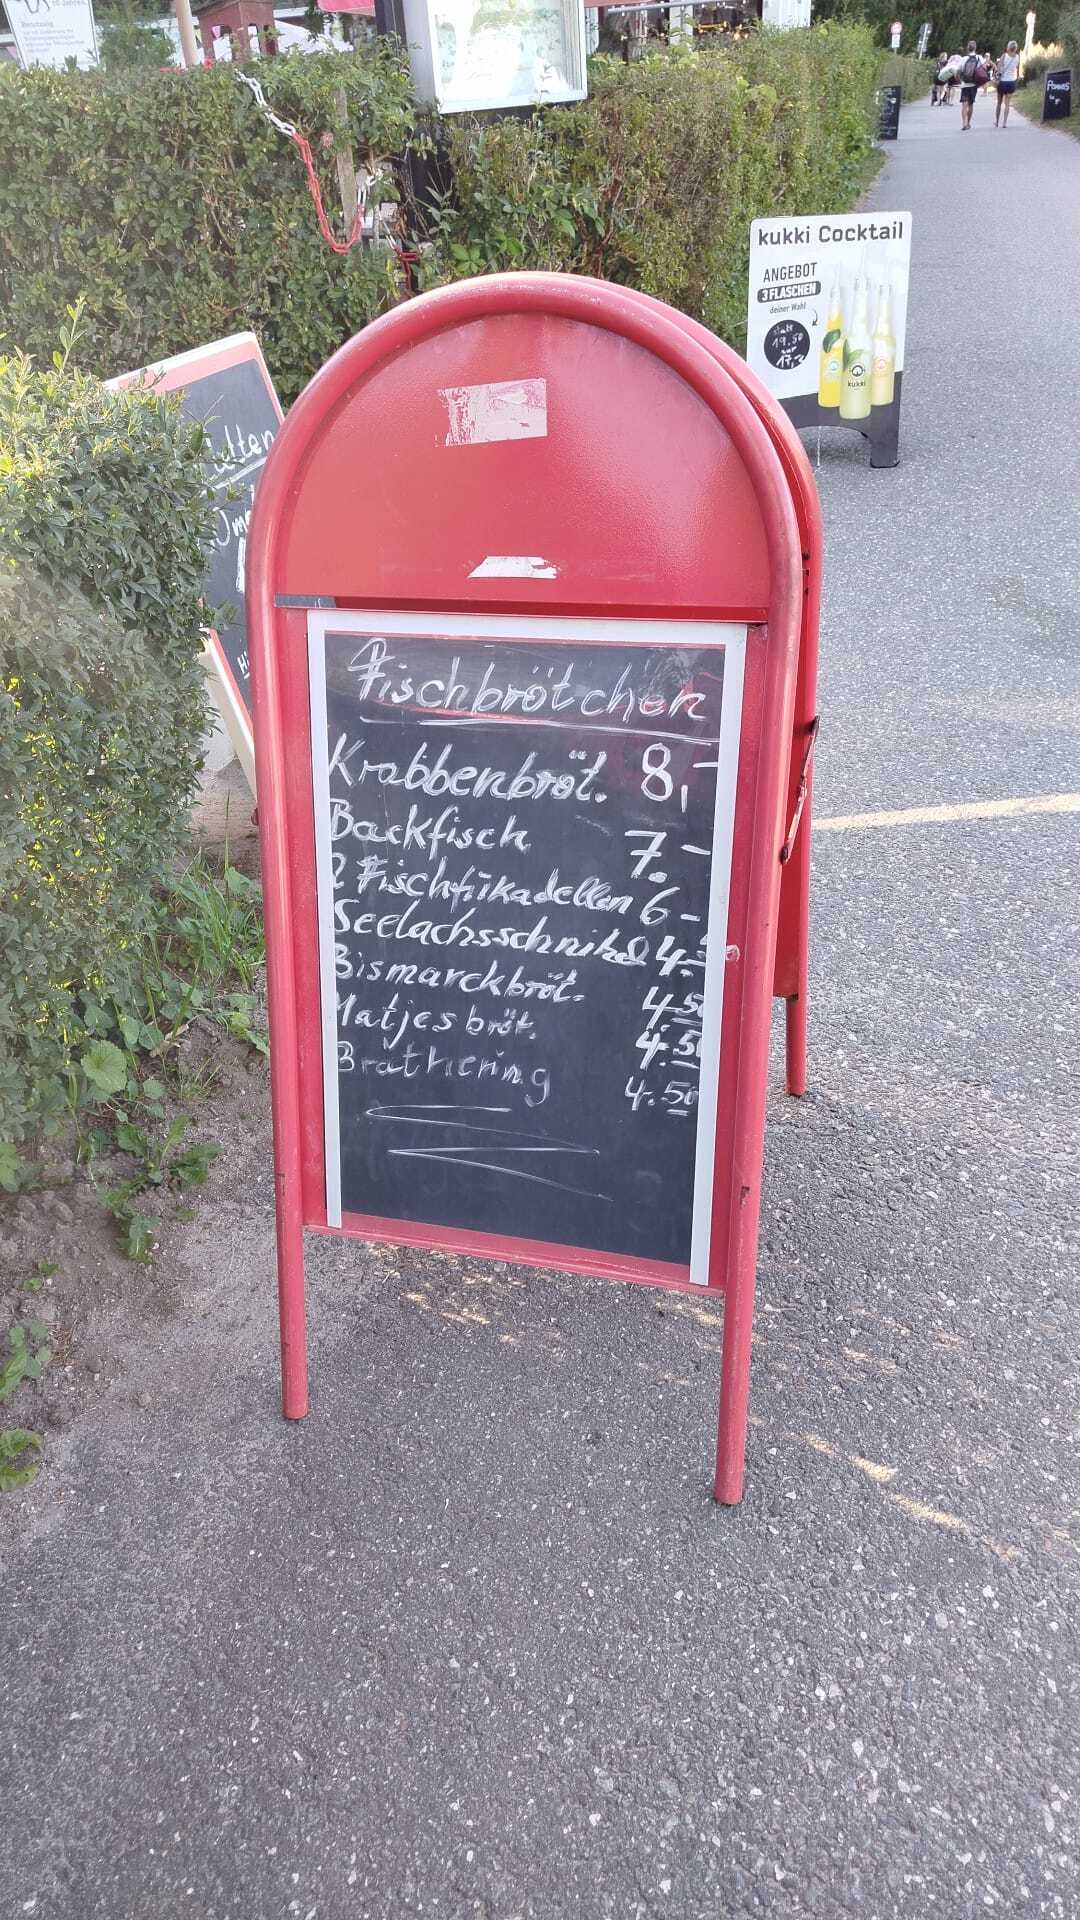 kukki Cocktail
ANGEBOT
3 FLASCHEN
deiner Wahl
statt
19,50
nur
kukki
Pommes
Fischbrötchen
Krabbenbröt. 8,-
Backfisch 7.-
2 Fischfrikadellen 6-
Seelachsschnitzel 4.5
Bismarckbröt. 4.50
Matjesbröt. 4.50
Brathering 4.50